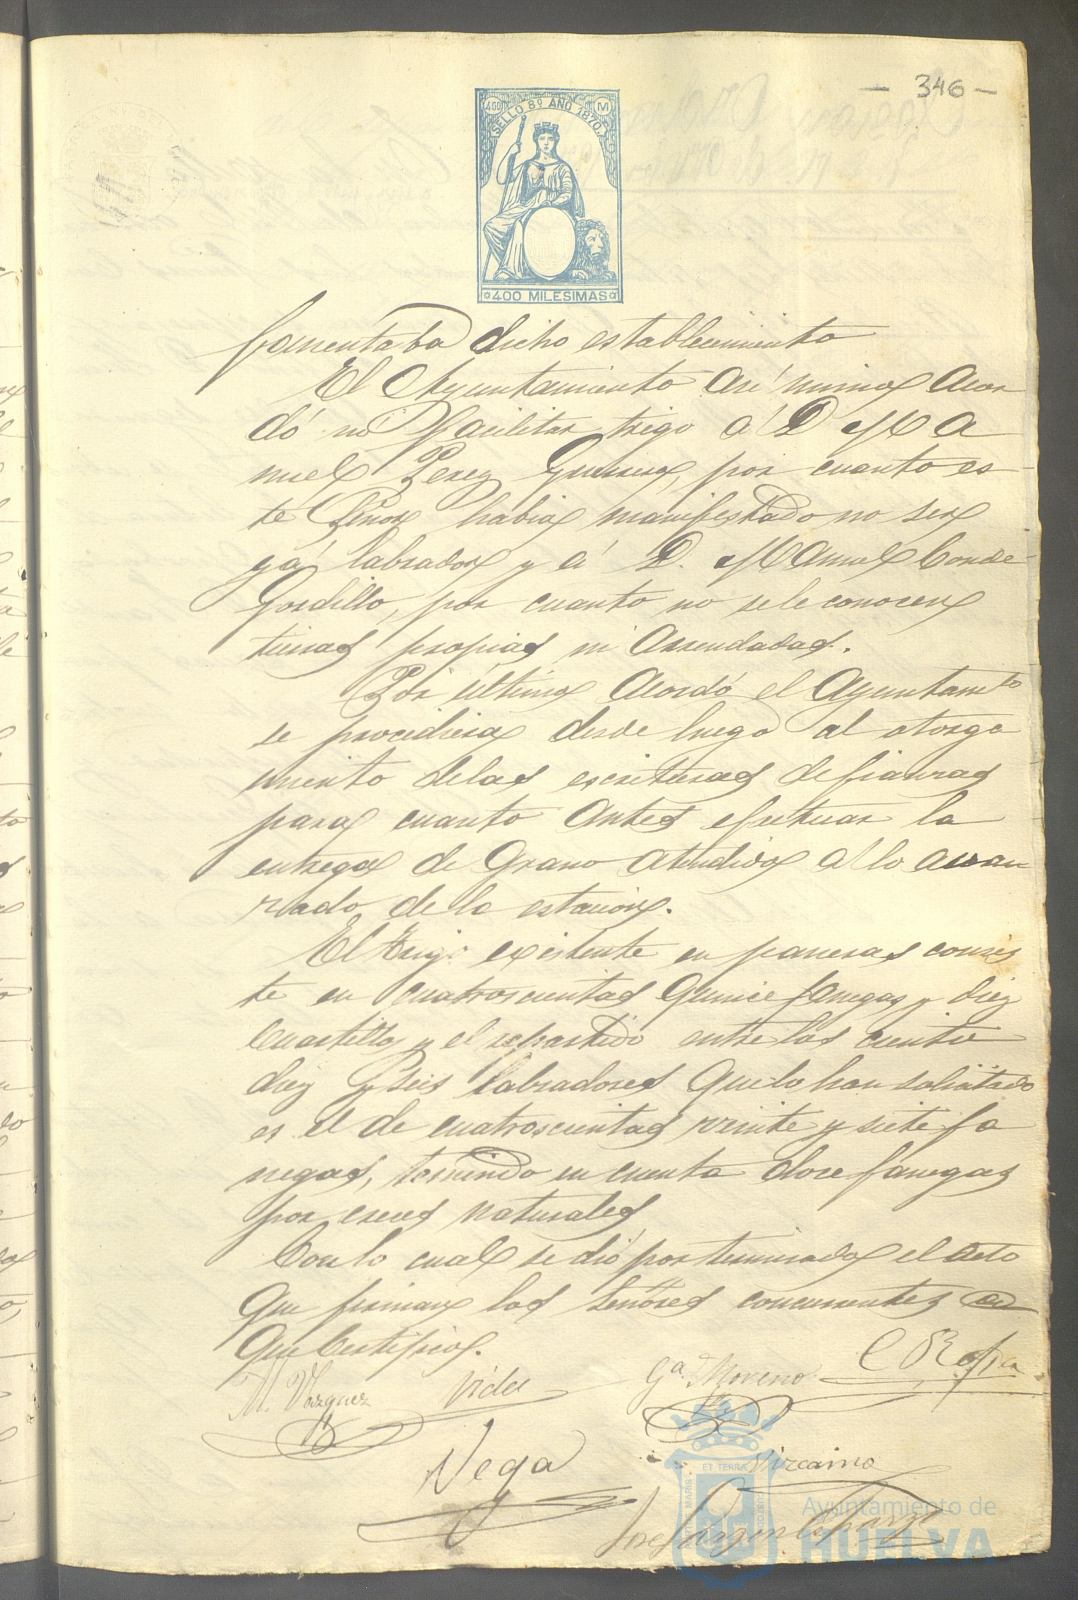 — 346 —
400 M
SELLO 8º AÑO 1870.
400 MILESIMAS
fomentaba dicho establecimiento
El Ayuntamiento asi mismo acor
dó no facilitar trigo á D Ma
nuel Perez Guerrero, por cuanto es-
te Señor habia manifestado no ser
ya labrador y á D. Manuel Conde
Gordillo, por cuanto no se le conocen
tierras propias ni arrendadas.
Por último acordó el Ayuntamto
se procediera desde luego al otorga
miento delas escrituras de fianzas
para cuanto antes efectuar la
entrega de grano atendido a lo avan
zado de la estacion.
El trigo existente en paneras consis
te en cuatroscientas quince fanegas y diez
cuartillos y el repartido entre los ciento
diez y seis labradores que lo han solicitado
es el de cuatroscientas veinte y siete fa
negas, teniendo en cuenta doce fanegas
por creces naturales
Con lo cual se dió por terminado el acto
que firman los Señores concurrentes de
que Certifico.
M. Vazquez Vides Ga. Moreno
Vega Vizcaino
Jose
ET TERRA
Ayuntamiento de
HUELVA